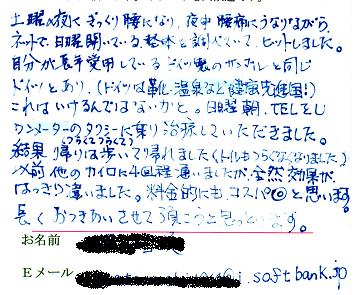 土曜の夜にぎっくり腰になり、夜中腰痛にうなりながら
ネットで、日曜開いている整体を調べていて、ヒットしました。
自分が長年愛用しているドイツ製のサンダルと同じ
ドイツとあり、(ドイツは靴、温泉など健康先進国!)
これはいけるんではないかと。日曜朝、TELをし
ワンメーターのタクシーに乗り治療していただきました。
結果、帰りは歩いて帰れました(トイレもつらくなくなりました)
以前他のカイロに4回程通いましたが、全然効果が
はっきり違いました。料金的にも、コスパ◎と思います。
長くおつきあいさせて頂こうと思っています。
お名前
Eメール
i.softbank.jp